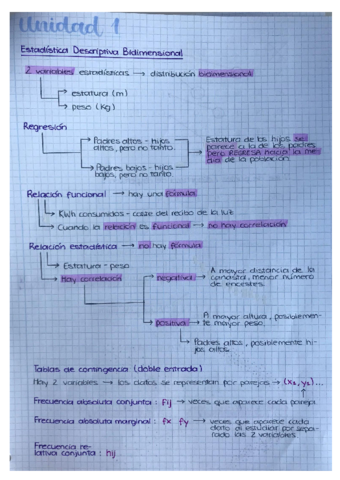 Unidad 1
Estadística Descriptiva Bidimensional
2 variables estadísticas → distribución bidimensional
→ estatura (m)
→ peso (Kg)
Regresión
→ Padres altos - hijos altos, pero no tanto.
→ Padres bajos - hijos bajos, pero no tanto.
Estatura de los hijos se parece a la de los padres pero REGRESA hacia la media de la población.
Relación funcional → hay una fórmula
→ KWh consumidos - coste del recibo de la luz
→ Cuando la relación es funcional → no hay correlación
Relación estadística → no hay fórmula
→ Estatura - peso
→ Hay correlación
→ negativa: → A mayor distancia de la canasta, menor número de encestes.
→ positiva → A mayor altura, posiblemente mayor peso.
→ Padres altos, posiblemente hijos altos.
Tablas de contingencia (doble entrada)
Hay 2 variables → los datos se representan por parejas → (x₁, y₁)...
Frecuencia absoluta conjunta: fij → veces que aparece cada pareja.
Frecuencia absoluta marginal: fx fy → veces que aparece cada dato al estudiar por separado las 2 variables.
Frecuencia relativa conjunta: hij